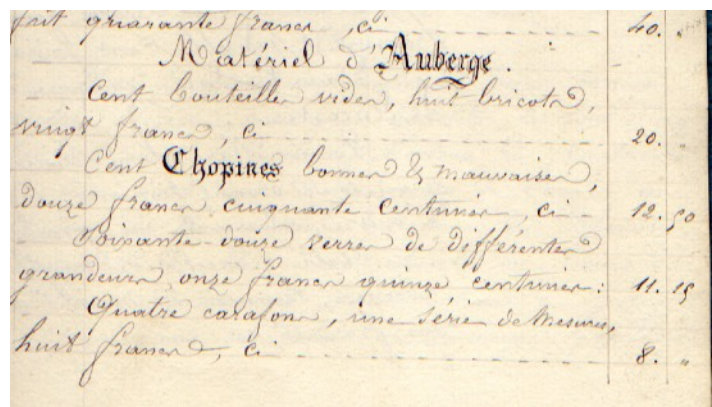 fait quarante francs, ci 40. "
Matériel d'Auberge.
Cent bouteilles vides, huit bricots,
vingt francs, ci 20. "
Cent Chopines bonnes & mauvaises,
douze francs cinquante centimes, ci 12. 50
Soixante-douze verres de différentes
grandeurs, onze francs quinze centimes: 11. 15
Quatre carafons, une série de Mesures,
huit francs, ci 8. "